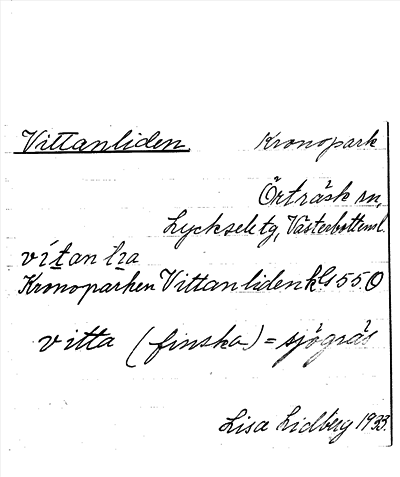 Vittanliden Kronopark
Örträsk sn,
Lycksele tg, Västerbottensl.
vítan
Kronoparken Vittanliden kls 55.0
vitta (finska) = sjögräs
Lisa Lidberg 1933.